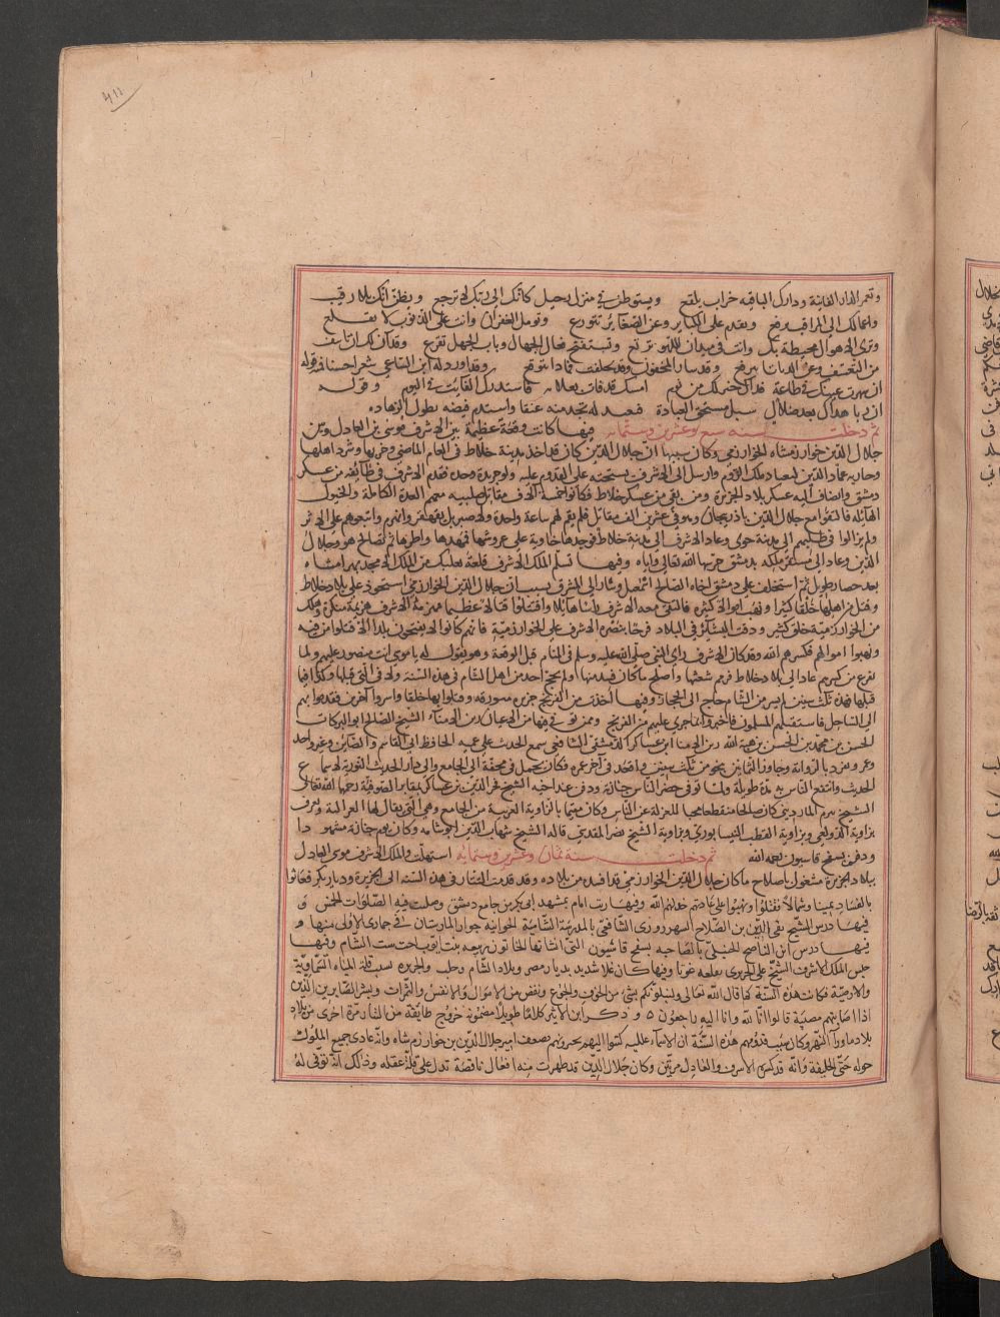 ٤١١
وتعمر الدار الفانية ودارك الباقيه خراب بلقع ويستوطن في منزل رحيل كانك الى ربك لا ترجع وتظن انك بلا رقيب
واعمالك الى المراقب ترفع وتقدم على الكباير وعن الصغاير تتورع وتومل الغفران وانت على الذنوب لا تقلع
وترى الاهوال محيطة بك وانت في ميدان اللهو ترتع وتستقبح فعال الجهال وباب الجهل تقرع وقد آن لك ان تانف
من التعسف وعن الدنايا تترفع وقد سار المخفون وقد تخلفت فماذا تتوقع وقد اورد له ابن الساعي شعرا حسنا فمنه قوله
ان سهرت عينك في طاعة فذاك خير لك من نوم امسك قد فات بعلاته فاستدرك الفايت في اليوم وقوله
ان ربا هداك بعد ضلال سبل الرشد مستحق للعبادة فتعبد له تجد منه عتقا واستدم فضله بطول الزهاده
ثم دخلت سنة سبع وعشرين وستمايه فيها كانت وقعة عظيمة بين الاشرف موسى بن العادل وبين
جلال الدين خوارزمشاه الخوارزمي وكان سببها ان جلال الدين كان قد اخذ مدينة خلاط في العام الماضي وخربها وشرد اهلها
وحاربه علاء الدين كيقباد ملك الروم وارسل الى الاشرف يستحثه على القدوم عليه ولو جريدة وحده فقدم الاشرف في طايفة من عسكر
دمشق وانضاف اليه عسكر بلاد الجزيرة ومن بقي من عسكر خلاط فكانوا خمسة آلاف مقاتل معهم العدة الكاملة والخيول
الهايلة فالتقوا مع جلال الدين باذربيجان وهو في عشرين الف مقاتل فلم يقم لهم ساعة واحدة ولا صبر بل تقهقر وانهزم واتبعوهم على الاثر
ولم يزالوا في طلبهم الى مدينة خوى وعاد الاشرف الى مدينة خلاط فوجدها خاوية على عروشها فمهدها واطرها ثم تصالح هو وجلال
الدين وعاد الى مستقر ملكه بدمشق حرسها الله تعالى واياه وفيها تسلم الملك الاشرف قلعة بعلبك من الملك الامجد بهرامشاه
بعد حصار طويل ثم استخلف على دمشق اخاه الصالح اسمعيل وسار الى الشرق بسبب ان جلال الدين الخوارزمي استحوذ على بلاد خلاط
وقتل من اهلها خلقا كثيرا ونهب اموالا كثيرة فالتقى معه الاشرف واقتتلوا قتالا عظيما فهزمه الاشرف هزيمة منكرة وهلك
من الخوارزمية خلق كثير ودقت البشاير في البلاد فرحا بنصرة الاشرف على الخوارزمية فانهم كانوا لا يفتحون بلدا الا قتلوا من فيه
ونهبوا اموالهم فكسرهم الله وقد كان الاشرف راى النبي صلى الله عليه وسلم في المنام قبل الوقعة وهو يقول له يا موسى انت منصور عليهم ولما
فرغ من كسرهم عاد الى بلاد خلاط فرمم شعثها واصلح ما كان فسد منها ولم يحج احد من اهل الشام في هذه السنة ولا في التي قبلها وكذا فيما
قبلها فهذه ثلاث سنين لم يسر من الشام حاج الى الحجاز وفيها اخذت من الفرنج جزيرة سورقه وقتلوا بها خلقا واسروا آخرين فقدموا بهم
الى الساحل فاستقبلهم المسلمون فاخبروا بما جرى عليهم من الفرنج وممن توفي فيها من الاعيان زين الامناء الشيخ الصالح ابو البركات
الحسن بن محمد بن الحسن بن هبة الله زين الامناء ابن عساكر الدمشقي الشافعي سمع الحديث على عميه الحافظ ابى القاسم والصاين وغير واحد
وعمر وتفرد بالرواية وجاوز الثمانين بنحو من ثلاث سنين واقعد في آخر عمره فكان يحمل في محفة الى الجامع والى دار الحديث النورية لاسماع
الحديث وانتفع الناس به مدة طويلة ولما توفي حضر الناس جنازته ودفن عند اخيه الشيخ فخر الدين بن عساكر بمقابر الصوفية رحمها الله تعالى
الشيخ بيرم المارديني كان صالحا منقطعا محبا للعزلة عن الناس وكان مقيما بالزاوية الغربية من الجامع وهي التي يقال لها الغزالية وتعرف
بزاوية الدولعي وبزاوية القطب النيسابوري وبزاوية الشيخ نصر المقدسي قاله الشيخ شهاب الدين ابو شامه وكان يوم جنازته مشهودا
ودفن بسفح قاسيون رحمه الله ثم دخلت سنة ثمان وعشرين وستمايه استهلت والملك الاشرف موسى العادل
ببلاد الجزيرة مشغول باصلاح ما كان جلال الدين الخوارزمي قد افسده من بلاده وقد قدمت التتار في هذه السنة الى الجزيرة وديار بكر فعاثوا
بالفساد يمينا وشمالا فقتلوا ونهبوا على عادتهم خذلهم الله وفيها رتب امام بمشهد ابى بكر من جامع دمشق وصليت فيه الصلوات الخمس و
فيها درس الشيخ تقى الدين بن الصلاح الشهرزورى الشافعي بالمدرسة الشامية الجوانية جوار المارستان في جمادى الاولى منها و
فيها درس ابن الناصح الحنبلي بالصاحبه بسفح قاسيون التى انشاتها الخاتون ربيعه بنت ايوب اخت ست الشام وفيها
حبس الملك الاشرف الشيخ على الحريرى بقلعه عزتا وفيها كان غلا شديد بديار مصر وبلاد الشام وحلب والجزيره لسبب قلة المياه السماوية
والارضية فكانت هذه السنة كما قال الله تعالى ولنبلونكم بشئ من الخوف والجوع ونقص من الاموال والانفس والثمرات وبشر الصابرين الذين
اذا اصابتهم مصيبة قالوا انا لله وانا اليه راجعون ٥ وذكر ابن الاثير كلاما طويلا مضمونه خروج طايفة من التتار مرة اخرى من بلاد
بلاد ماورآ النهر وكان سبب قدومهم هذه السنة ان الاسماعيليه كتبوا اليهم يخبرونهم بضعف امر جلال الدين بن خوارزم شاه وانه عادى جميع الملوك
حوله حتى الخليفة وانه قد كسره الاشرف والعادل مرتين وكان جلال الدين قد ظهرت منه افعال ناقصة تدل على قلة عقله وذلك انه توفى له